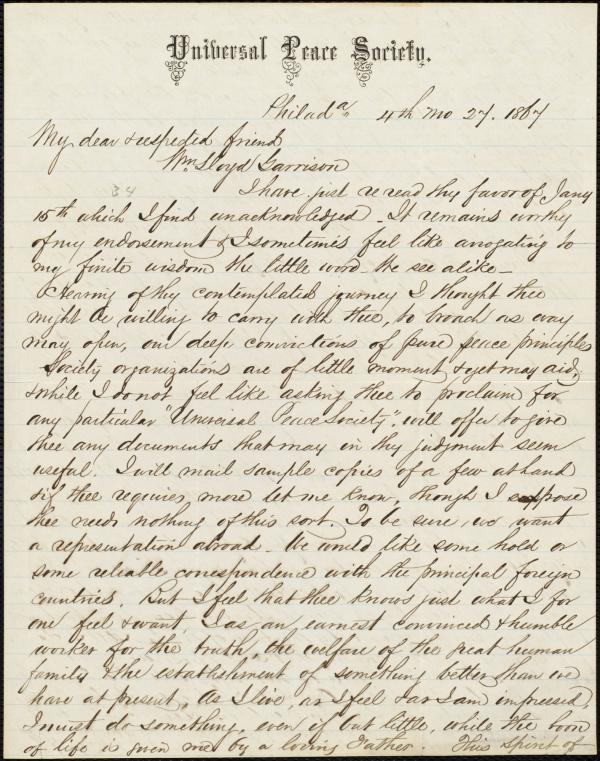 Universal Peace Society.
Philada 4th mo 27. 1867
My dear & respected friend
Wm Lloyd Garrison
34
I have just re read thy favor of Jany
15th which I find unacknowledged - It remains worthy
of my endorsement & I sometimes feel like arrogating to
my finite wisdom the little word We see alike -
Hearing of thy contemplated journey I thought thee
might be willing to carry with thee, to broach as way
may open, our deep convictions of pure peace principles
Society organizations are of little moment & yet may aid,
& while I do not feel like asking thee to proclaim for
any particular "Universal Peace Society", will offer to give
thee any documents that may in thy judgment seem
useful. I will mail sample copies of a few at hand
& if thee requires more let me know, though I suppose
thee needs nothing of this sort. To be sure we want
a representation abroad - We would like some hold or
some reliable correspondence with the principal foreign
countries. But I feel that thee knows just what I for
one feel & want, I as an earnest convinced & humble
worker for the truth, the welfare of the great human
family & the establishment of something better than we
have at present. As I live, as I feel & as I am impressed,
I must do something, even if but little, while the boon
of life is given me by a loving Father. This spirit of